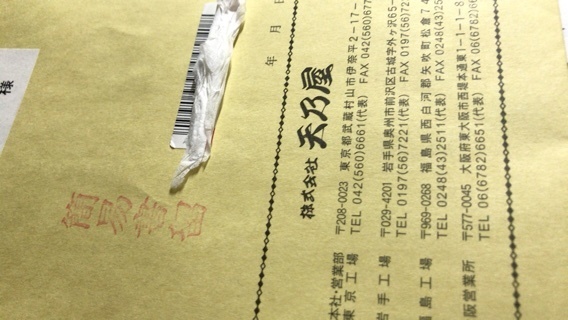 様
年　月
株式会社 天乃屋
本社・営業部
東京工場
〒208-0023 東京都武蔵村山市伊奈平2-17-
TEL 042(560)6661(代表) FAX 042(560)677
岩手工場
〒029-4201 岩手県奥州市前沢区古城字外ヶ沢65-
TEL 0197(56)7221(代表) FAX 0197(56)72
福島工場
〒969-0268 福島県西白河郡矢吹町松倉74
TEL 0248(43)2511(代表) FAX 0248(43)25
阪営業所
〒577-0045 大阪府東大阪市西堤本通東1-1-1-8
TEL 06(6782)6651(代表) FAX 06(6782)66
簡易書留